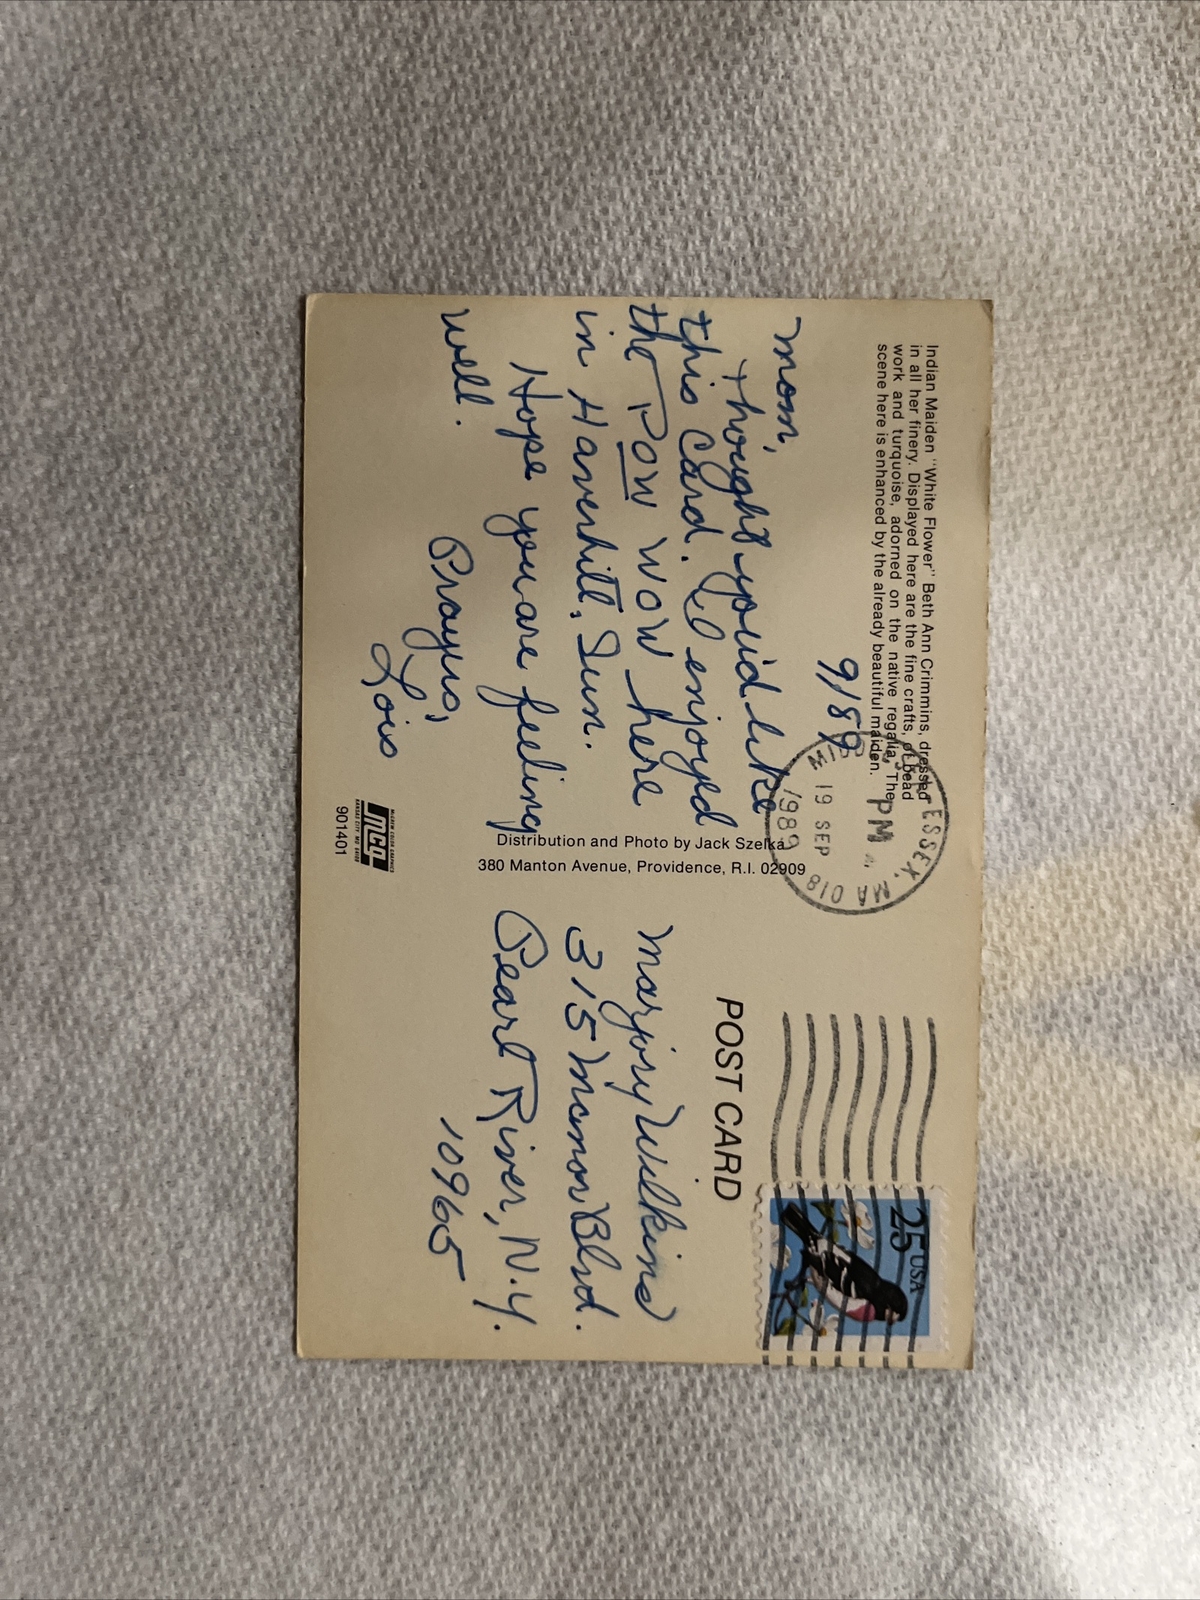 Indian Maiden "White Flower" Beth Ann Crimmins, dressed
in all her finery. Displayed here are the fine crafts, of bead
work and turquoise, adorned on the native regalia. The
scene here is enhanced by the already beautiful maiden.
9/89
Mom,
Thought you'd like
this card. I enjoyed
the POW WOW here
in Haverhill, Sun.
Hope you are feeling
well.
Prayers,
Lois
ESSEX, MA 018
PM
19 SEP
1989
25 USA
POST CARD
Distribution and Photo by Jack Szelka
380 Manton Avenue, Providence, R.I. 02909
Marjory Wilkins
315 Manor Blvd.
Pearl River, N.Y.
10965
mcg
McGREW COLOR GRAPHICS
KANSAS CITY, MO
901401